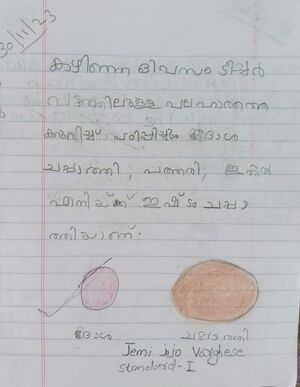 30/11/23
കഴിഞ്ഞ ദിവസം ടീച്ചർ
പട്ടണത്തിലുള്ള പലഹാരത്തെ
കുറിച്ച് പഠിപ്പിച്ചു ദോശ
ചപ്പാത്തി, പത്തരി, ഇതിൽ
എനിയ്ക്ക് ഇഷ്ടം ചപ്പാ
ത്തിയാണ്.
ദോശ ചപ്പാത്തി
Jemi Jejo Varghese
standard-I